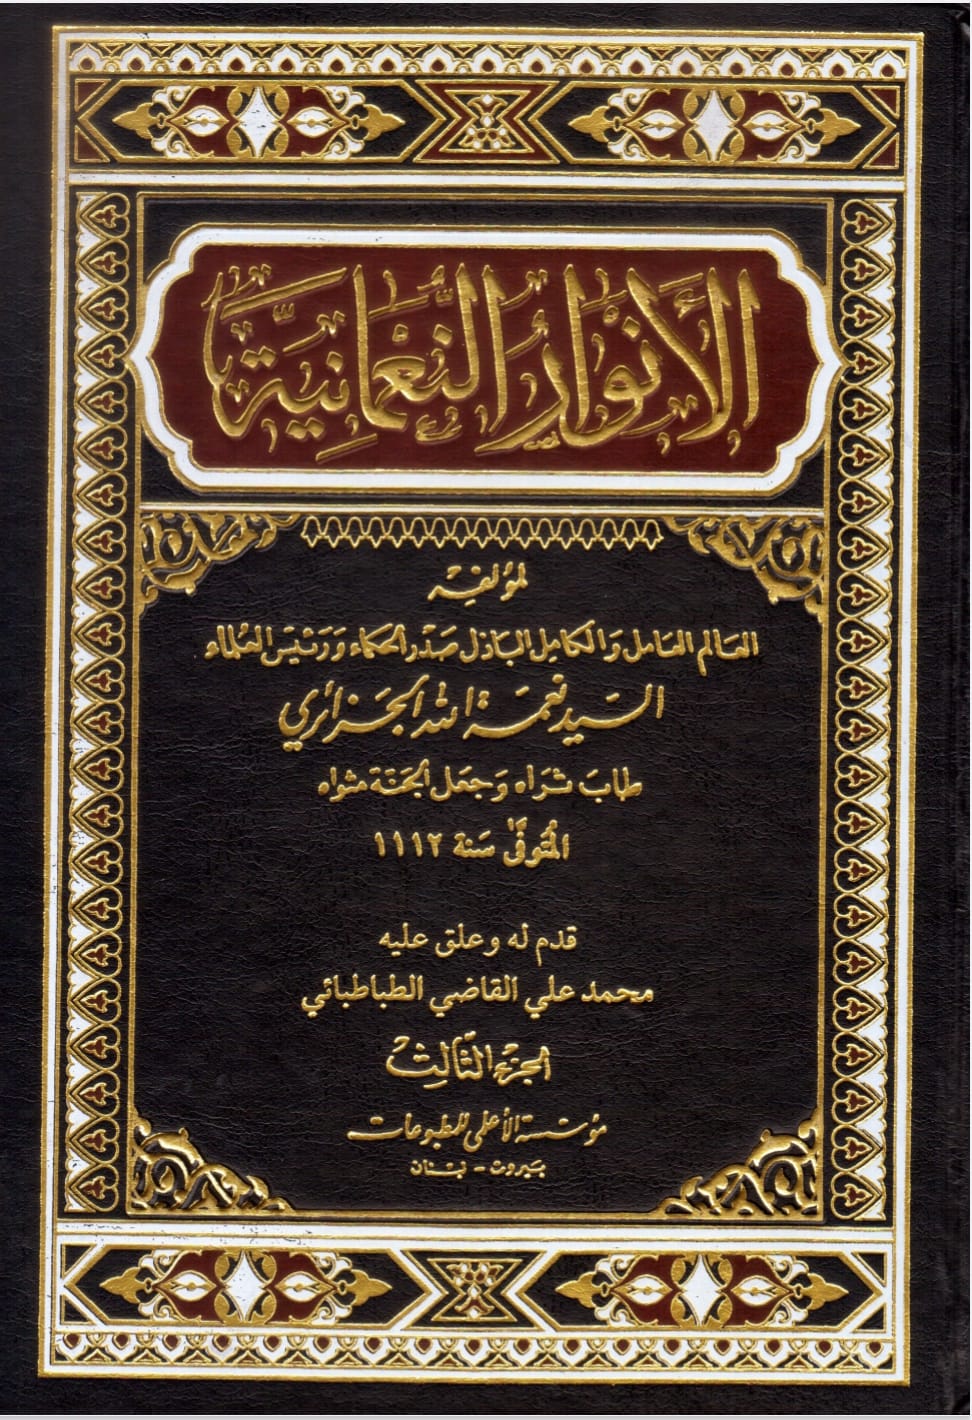 الأنوار النعمانية
لمؤلفه
العالم العامل والكامل الباذل صدر الحكماء ورئيس العلماء
السيد نعمة الله الجزائري
طاب ثراه وجعل الجنة مثواه
المتوفى سنة ١١١٢
قدم له وعلق عليه
محمد علي القاضي الطباطبائي
الجزء الثالث
مؤسسة الأعلمي للمطبوعات
بيروت - لبنان